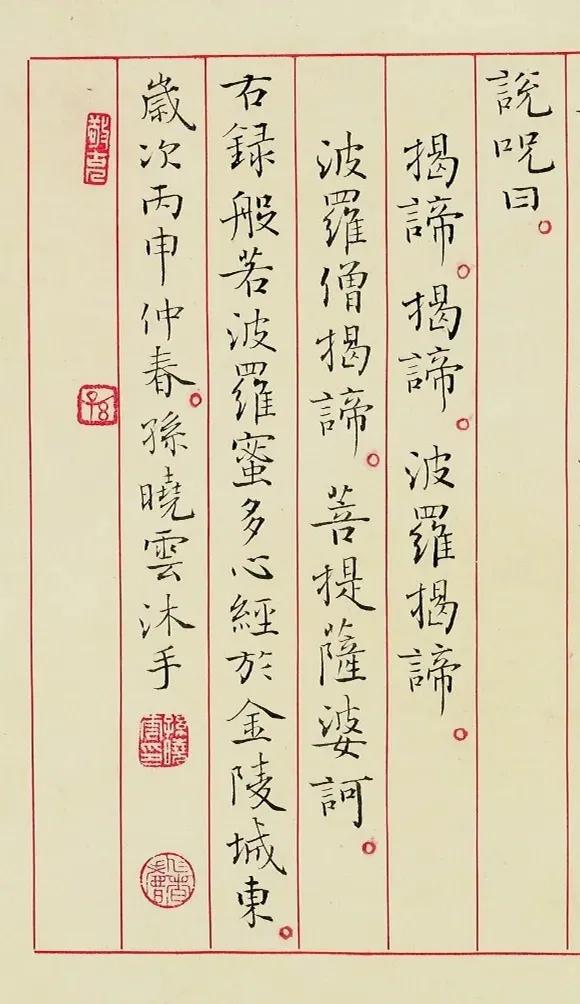 說呪曰。
揭諦。揭諦。波羅揭諦。
波羅僧揭諦。菩提薩婆訶。
右録般若波羅蜜多心經於金陵城東。
歲次丙申仲春。孫曉雲沐手